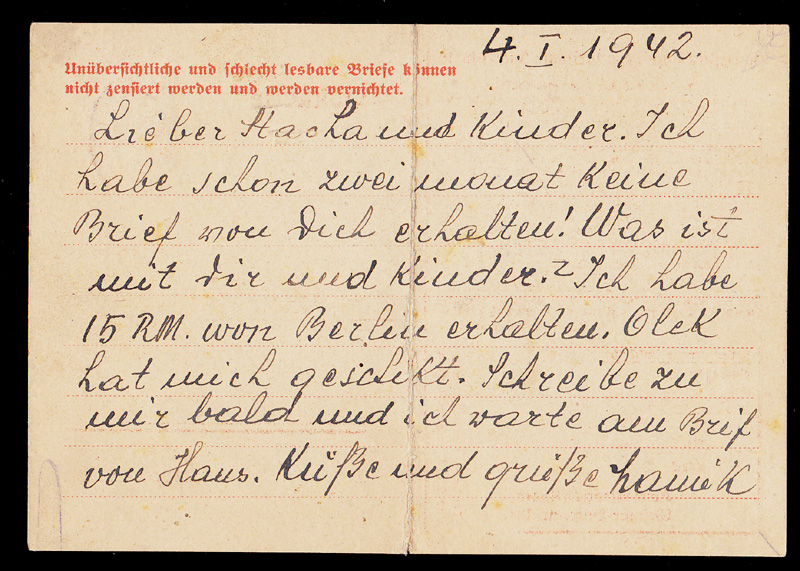 4. I. 1942.
Unübersichtliche und schlecht lesbare Briefe können
nicht zensiert werden und werden vernichtet.
Lieber Stacha und Kinder. Ich
habe schon zwei monat Keine
Brief von dich erhalten! Was ist
mit dir und Kinder.? Ich habe
15 RM. won Berlin erhalten. Olek
hat mich geschikt. Schreibe zu
mir bald und ich warte am Brif
von Haus. Küße und grüße